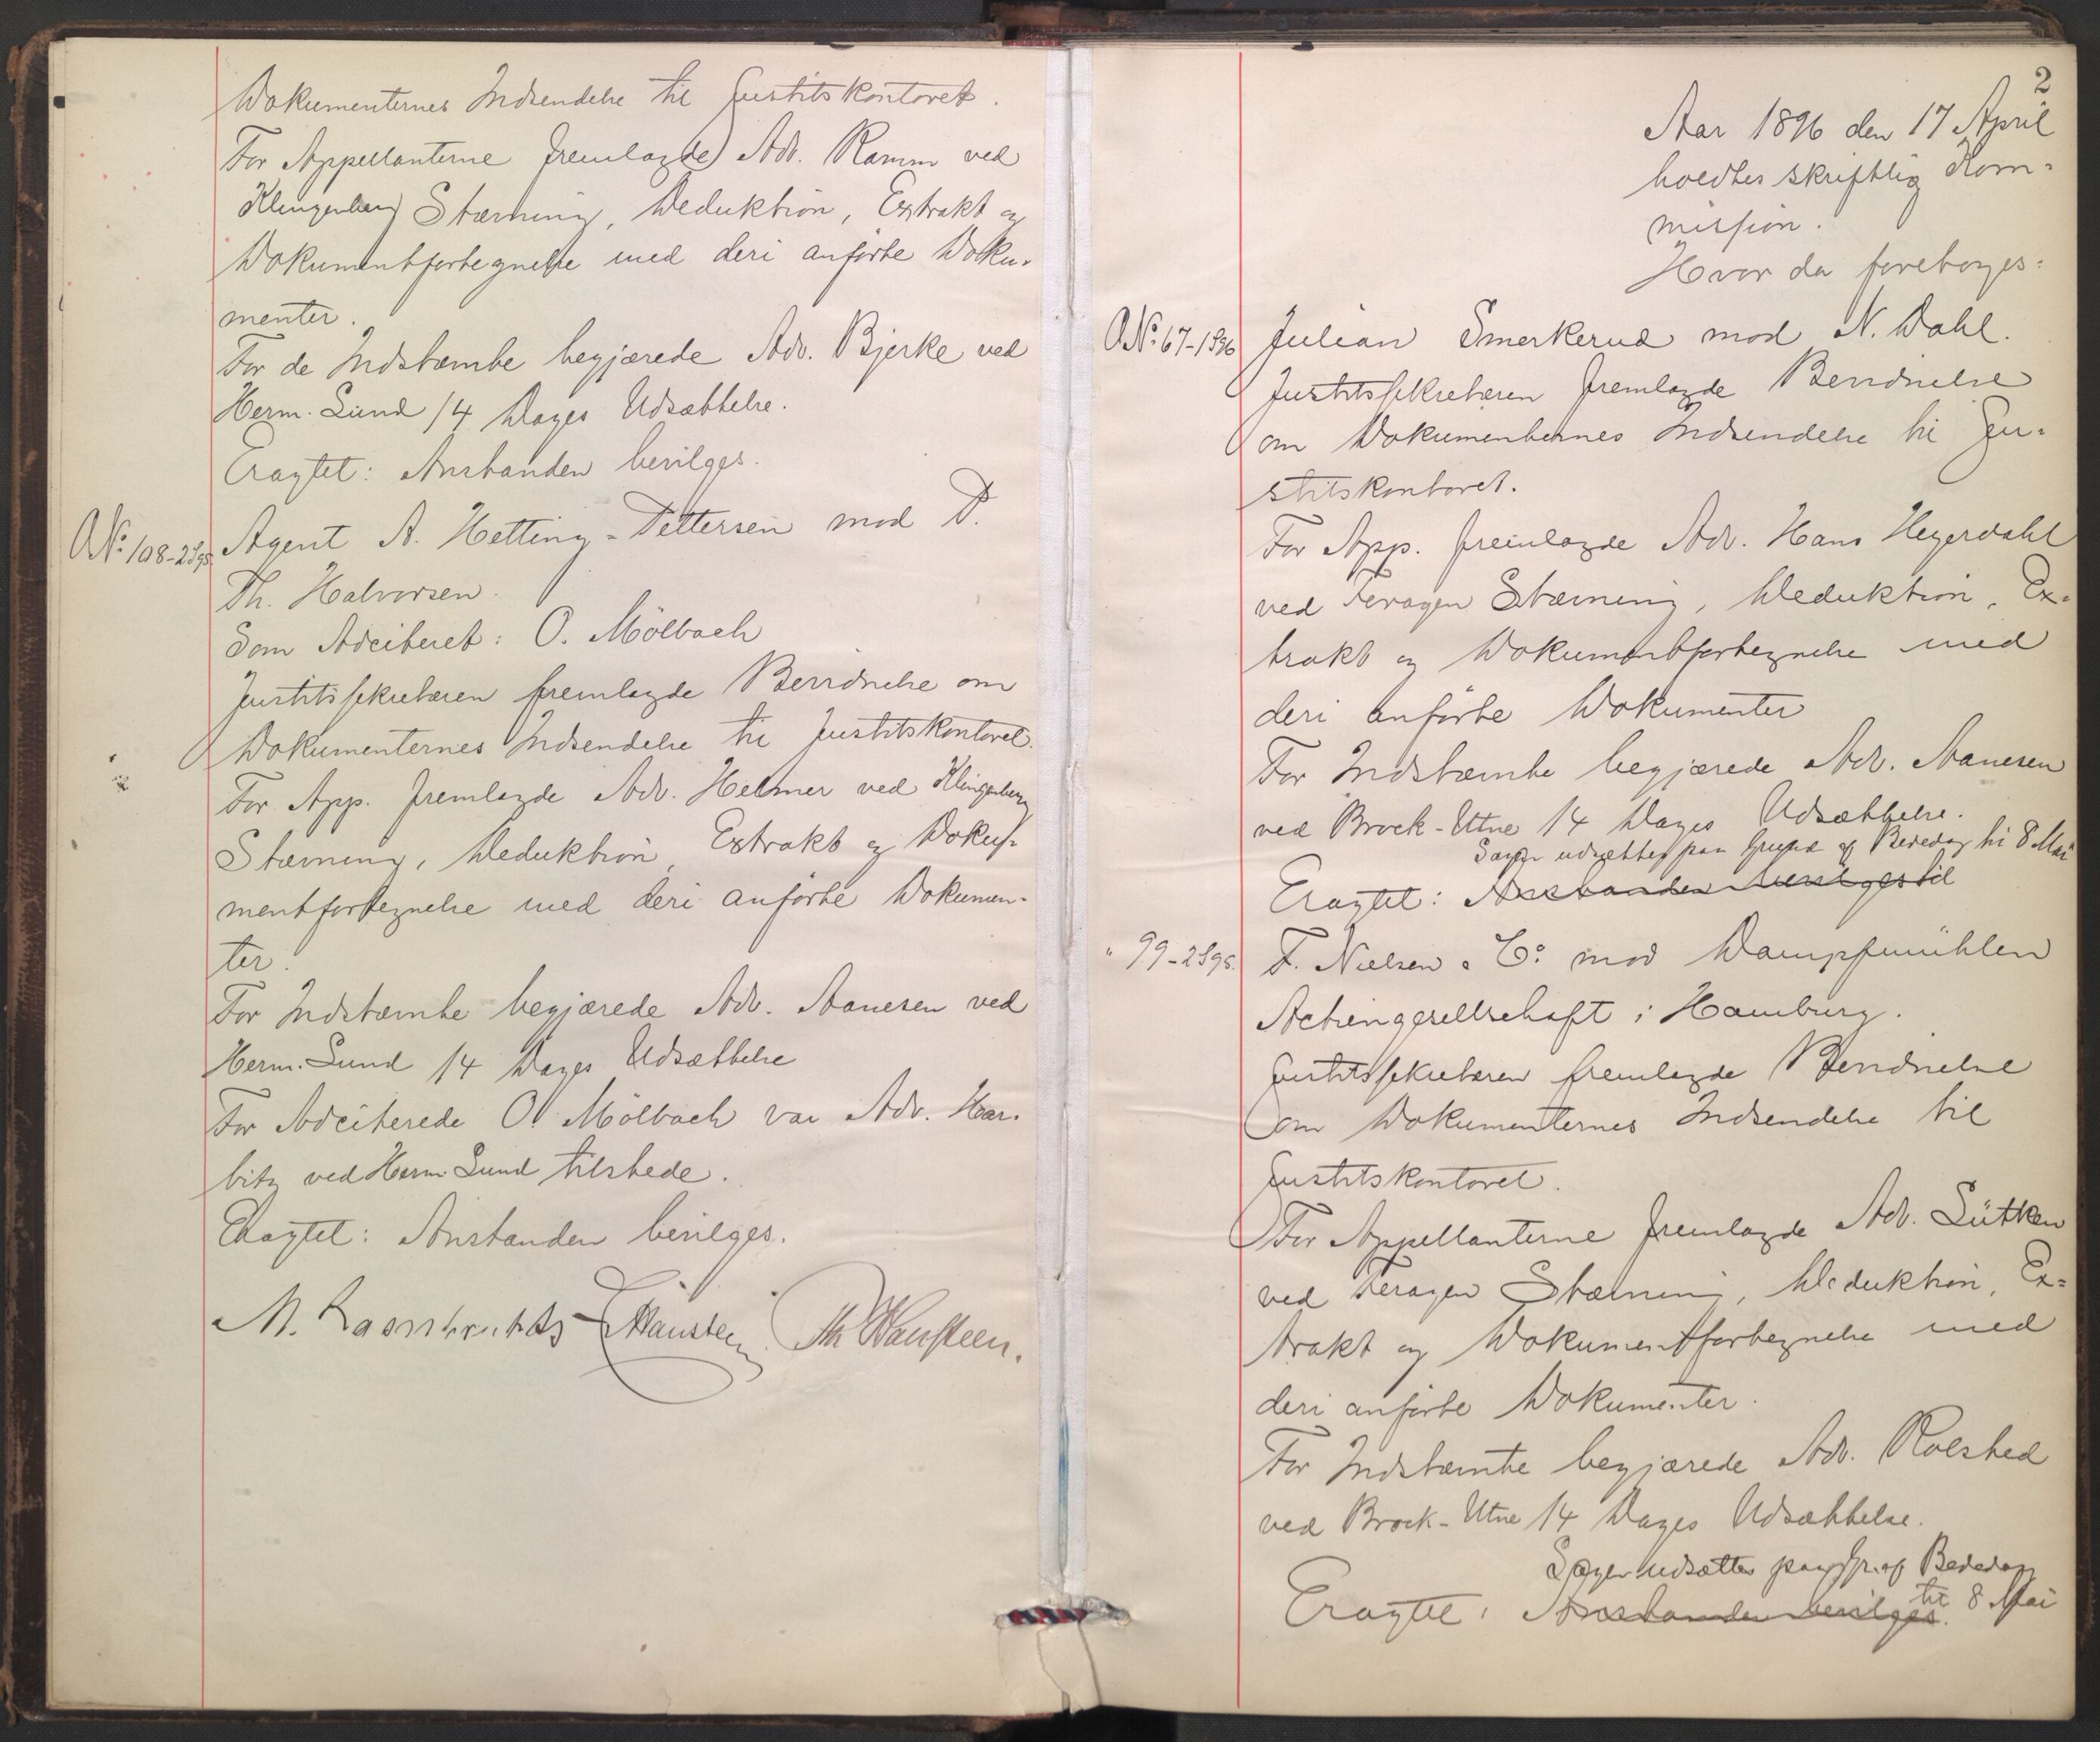 Dokumenternes Indsendelse til Justitskontoret.
For Appellanterne fremlagde Adv. Ramm ved
Klingenberg Stævning, Deduktion, Extrakt og
Dokumentfortegnelse med deri anførte Doku-
menter.
For de Indstævnte begjærede Adv. Bjerke ved
Herm. Lund 14 Dages Udsættelse.
Eragtet: Anstanden bevilges.
A No 108-2 S 95. Agent A. Hetting-Pettersen mod P.
Th. Halvorsen.
Som Adciteret: O. Mölbach
Justitssekretæren fremlagde Bevidnelse om
Dokumenternes Indsendelse til Justitskontoret.
For App. fremlagde Adv. Helmer ved Klingenberg
Stævning, Deduktion, Extrakt og Doku-
mentfortegnelse med deri anførte Dokumen-
ter.
For Indstævnte begjærede Adv. Aanesen ved
Herm. Lund 14 Dages Udsættelse
For Adciterede O. Mölbach var Adv. Har-
bitz ved Herm. Lund tilstede.
Eragtet: Anstanden bevilges.
Hansteen.
2
Aar 1896 den 17 April
holdtes skriftlig Kom-
mission.
Hvor da foretoges:
A No 67-1 S 96 Julian Smerkerud mod N. Dahl.
Justitssekretæren fremlagde Bevidnelse
om Dokumenternes Indsendelse til Ju-
stitskontoret.
For App. fremlagde Adv. Hans Heyerdahl
ved Feragen Stævning, Deduktion, Ex-
trakt og Dokumentfortegnelse med
deri anførte Dokumenter
For Indstævnte begjærede Adv. Aanesen
ved Brock-Utne 14 Dages Udsættelse.
Sagen udsættes paa Grund af Bededag til 8 Mai
Eragtet: Anstanden bevilges til
" 99-2 S 95. F. Nielsen & Co mod Dampfmühlen
Actiengesellschaft i Hamburg.
Justitssekretæren fremlagde Bevidnelse
om Dokumenternes Indsendelse til
Justitskontoret.
For Appellanterne fremlagde Adv. Lütken
ved Feragen Stævning, Deduktion, Ex-
trakt og Dokumentfortegnelse med
deri anførte Dokumenter.
For Indstævnte begjærede Adv. Rolsted
ved Brock-Utne 14 Dages Udsættelse.
Sagen udsættes paa Gr. af Bededag
til 8 Mai
Eragtet: Anstanden bevilges.